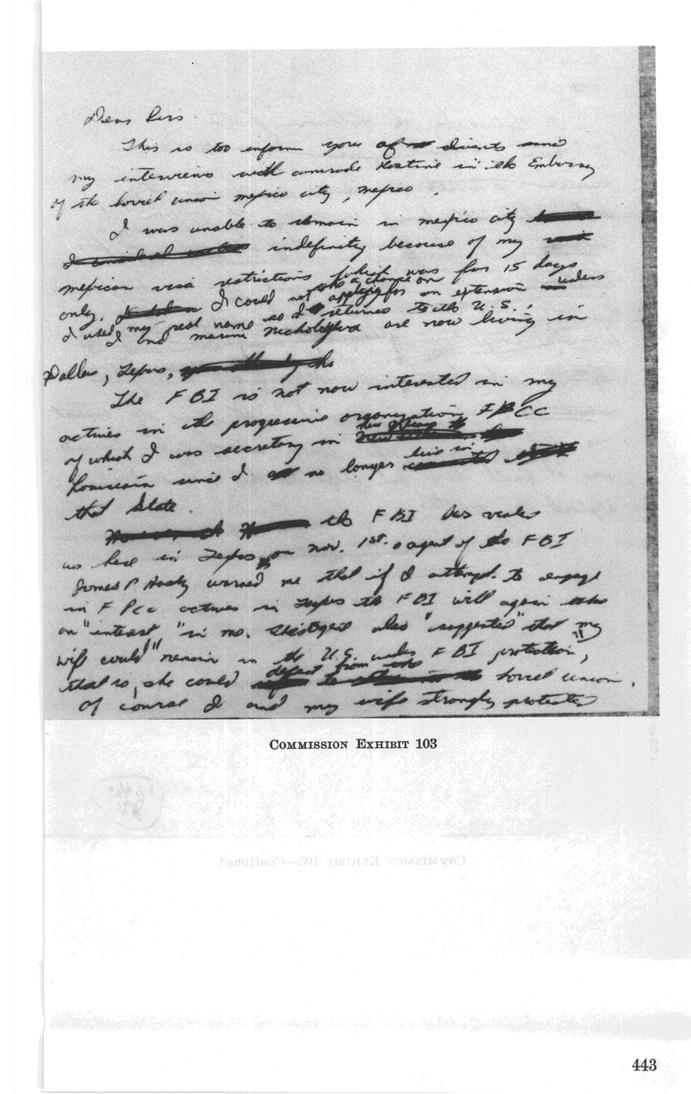 Dear Sirs
This is too inform you of events since
my interviews with comrade Kostine in the Embassy
of the Soviet Union mexico city, mexico.
I was unable to remain in mexico city
indefinity because of my
mexican visa restrictions which was for 15 days
only. I could not take a chance on applying for an extension unless
I used my real name so I returned to the U.S.
I and marina nicholeyeva are now living in
Dallas, Texas,
The FBI is not now interested in my
activies in the progressive organization FPCC
of which I was secretary in new orleans
Louisiana since I no longer live in
that State.
the FBI has
us here in Texas on Nov. 1st. agent of the FBI
James P. Hasty warned me that if I attempt to engage
in FPCC activies in Texas the FBI will again take
an "interest" in me. also "suggested" that my
wife could "remain in the U.S. under FBI protection",
that is, she could defect from the Soviet Union.
Of course I and my wife strongly protested
COMMISSION EXHIBIT 103
COMMISSION EXHIBIT 103—Continued
443